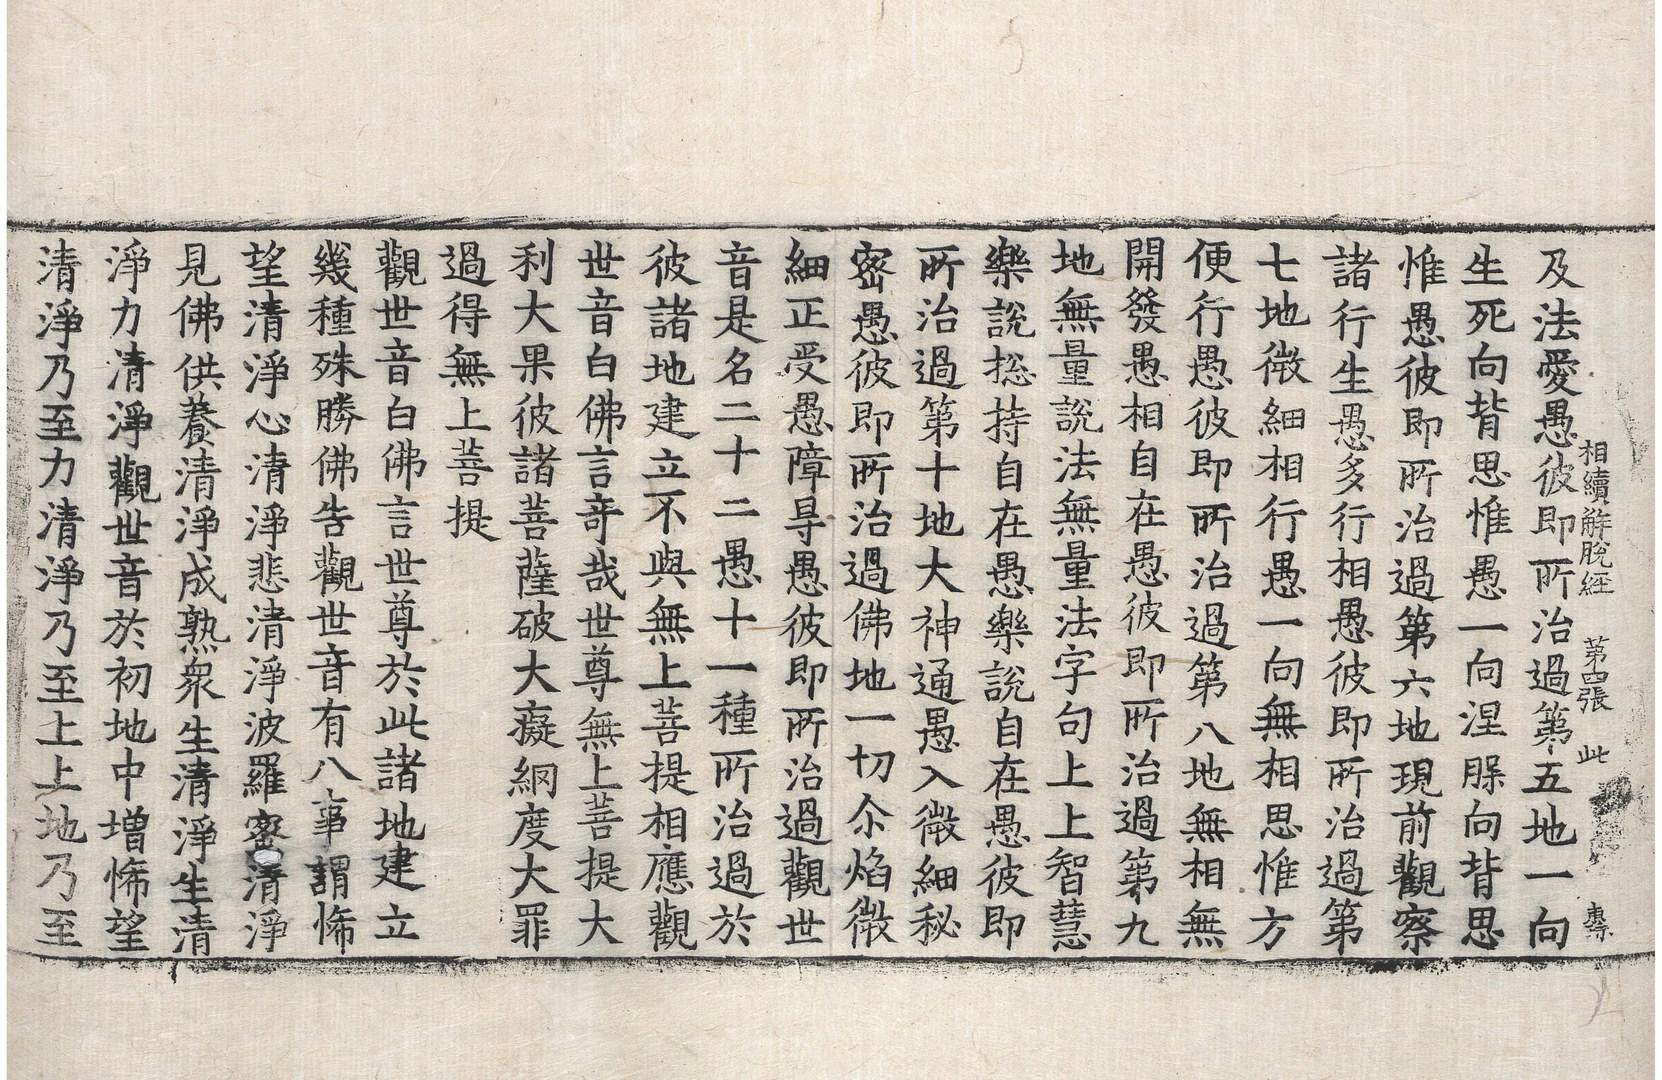 相續解脫經 第四張 此
及法愛愚彼即所治過第五地一向
生死向背思惟愚一向涅槃向背思
惟愚彼即所治過第六地現前觀察
諸行生愚多行相愚彼即所治過第
七地微細相行愚一向無相思惟方
便行愚彼即所治過第八地無相無
開發愚相自在愚彼即所治過第九
地無量說法無量法字句上上智慧
樂說捴持自在愚樂說自在愚彼即
所治過第十地大神通愚入微細秘
密愚彼即所治過佛地一切尒焰微
細正受愚障㝵愚彼即所治過觀世
音是名二十二愚十一種所治過於
彼諸地建立不與無上菩提相應觀
世音白佛言奇哉世尊無上菩提大
利大果彼諸菩薩破大癡網度大罪
過得無上菩提
觀世音白佛言世尊於此諸地建立
幾種殊勝佛告觀世音有八事謂悕
望清淨心清淨悲清淨波羅密清淨
見佛供養清淨成熟衆生清淨生清
淨力清淨觀世音於初地中增悕望
清淨乃至力清淨乃至上上地乃至